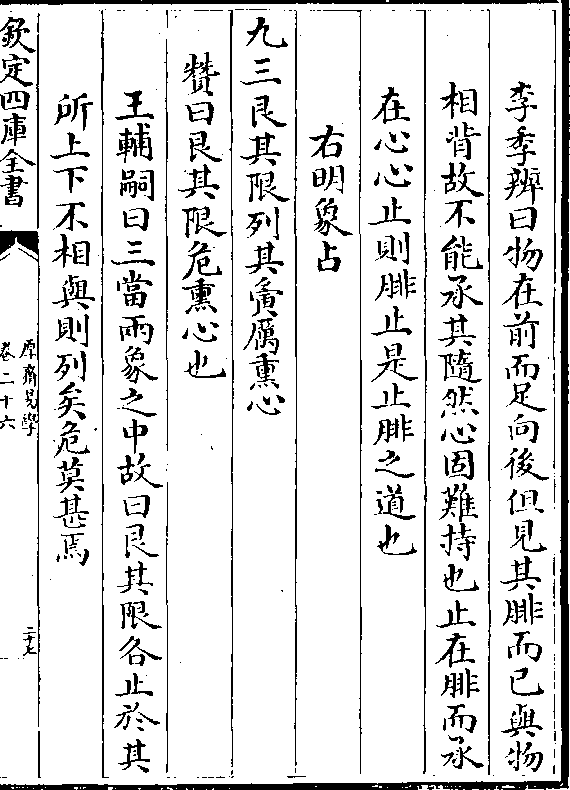 李季辨曰物在前而足向後但見其腓而已與物
相背故不能承其隨然心固難持也止在腓而承
在心心止則腓止是止腓之道也
右明象占
九三艮其限列其夤厲熏心
贊曰艮其限危熏心也
王輔嗣曰三當兩象之中故曰艮其限各止於其
所上下不相與則列矣危莫甚焉
欽定四庫全書
厚齋易學
卷二十六
二十七